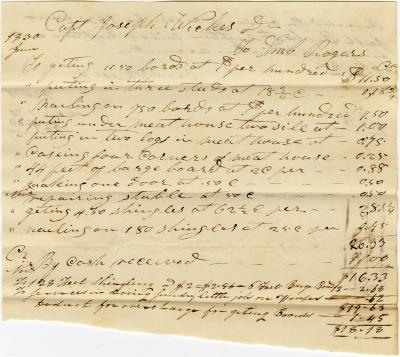 Capt Joseph Wickes Dr
1830 To Thos Rogers
June
To geting 1150 bords at $ per hundred $11.50
" putting in three studs at 18 3/4 c
" Nailing on 150 bords at $ per hundred 1.50
" puting under meat house two sills at 1.00
" puting in two logs in meat house at 0.75
" Casing four corners of meat house 0.25
" 44 feet of barge board at 2c per 0.88
" making one door at .50c 0.50
" repairing stable at 50c 0.50
" geting 4.50 shingles at 62 1/2 c per
" nailing on 180 shingles at 25c per .45
26.33
Cr By Cash received
$16.33
To 128 Feet 6 Feet Barge Bords 2.68
To services in doing sundry little jobs on .62
$19.63
Deduct for overcharge for geting Boards 1.45
$18.18